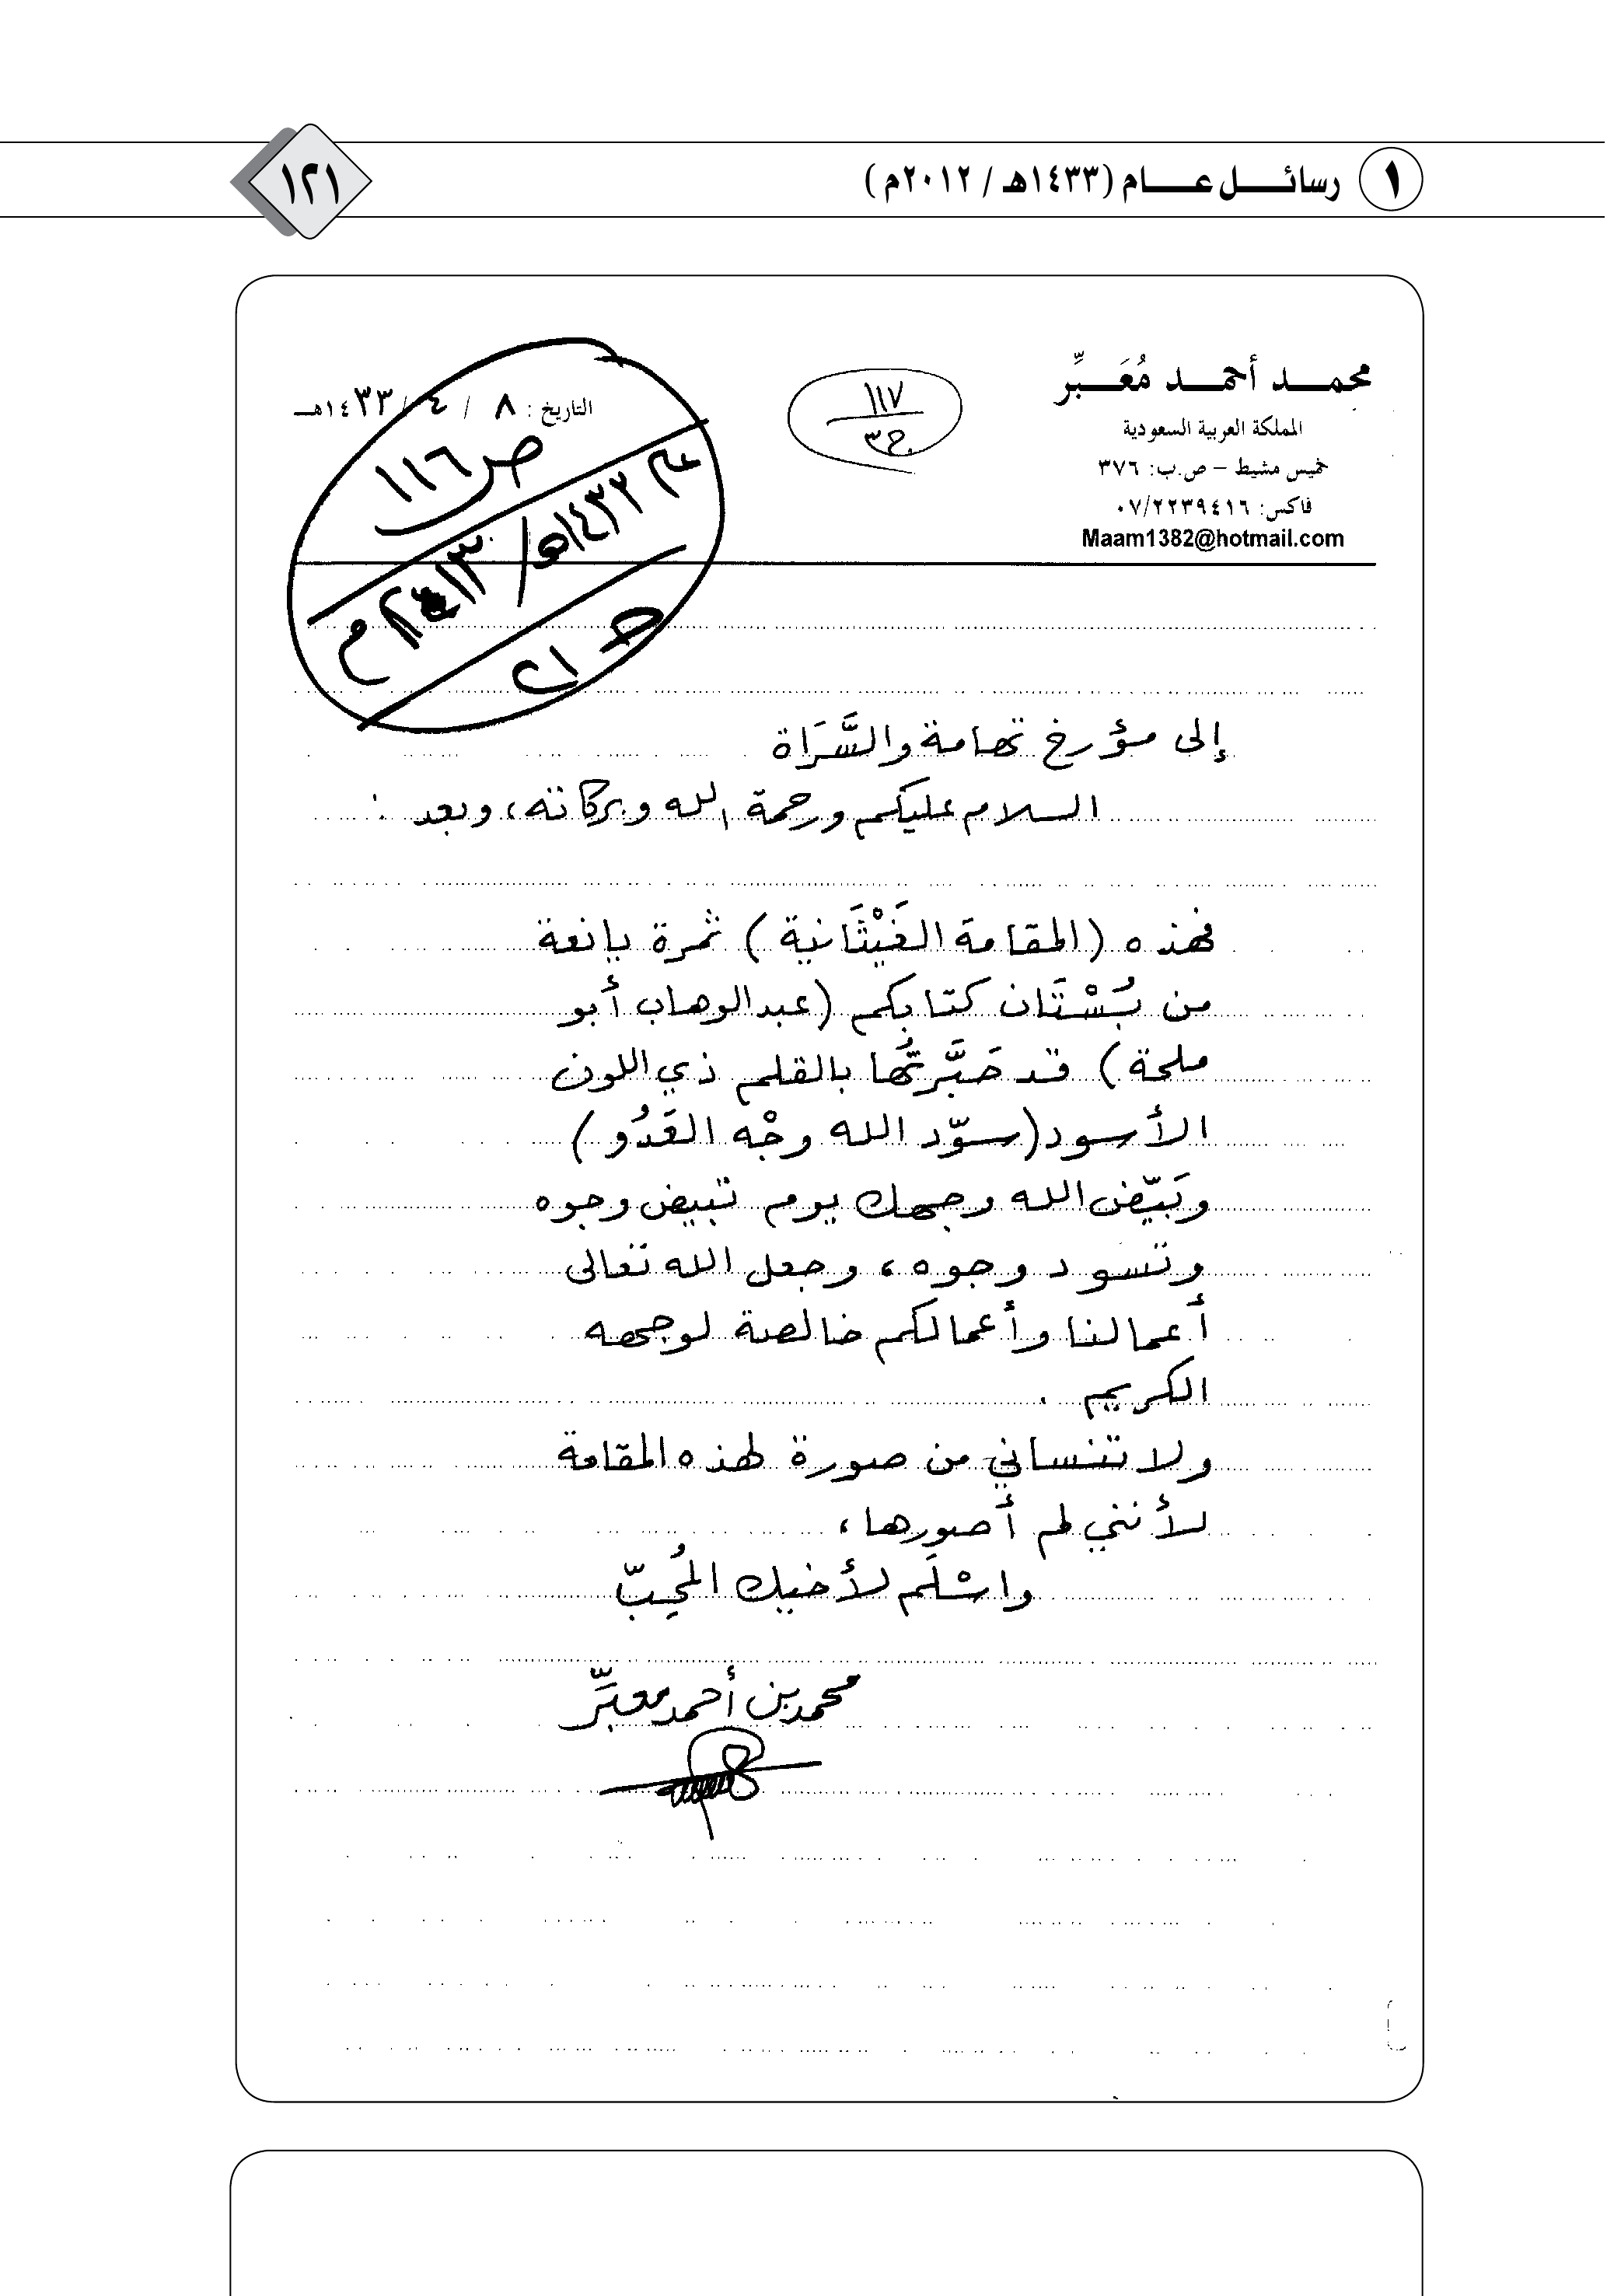 ١ رسائل عام (١٤٣٣هـ / ٢٠١٢م)
١٢١
محمد أحمد مُعَبِّر
المملكة العربية السعودية
خميس مشيط - ص.ب: ٣٧٦
فاكس: ٠٧/٢٢٣٩٤١٦
Maam1382@hotmail.com
١١٧
ج٣
التاريخ : ٨ / ٤ / ١٤٣٣هـ
ص ١١٦
إلى مؤرخ تهامة والسَّرَاة
السلام عليكم ورحمة الله وبركاته، وبعد :
فهذه (المقامة الغَيْثَانية) ثمرة يانعة
من بُسْتَان كتابكم (عبدالوهاب أبو
ملحة) قد حَبَّرتُها بالقلم ذي اللون
الأسود (سوّد الله وجْه العَدُو)
وبَيّض الله وجهك يوم تبيض وجوه
وتسود وجوه، وجعل الله تعالى
أعمالنا وأعمالكم خالصة لوجهه
الكريم .
ولا تنساني من صورة لهذه المقامة
لأنني لم أصورها،
واسْلَم لأخيك المُحِبّ
محمد بن أحمد معبِّر